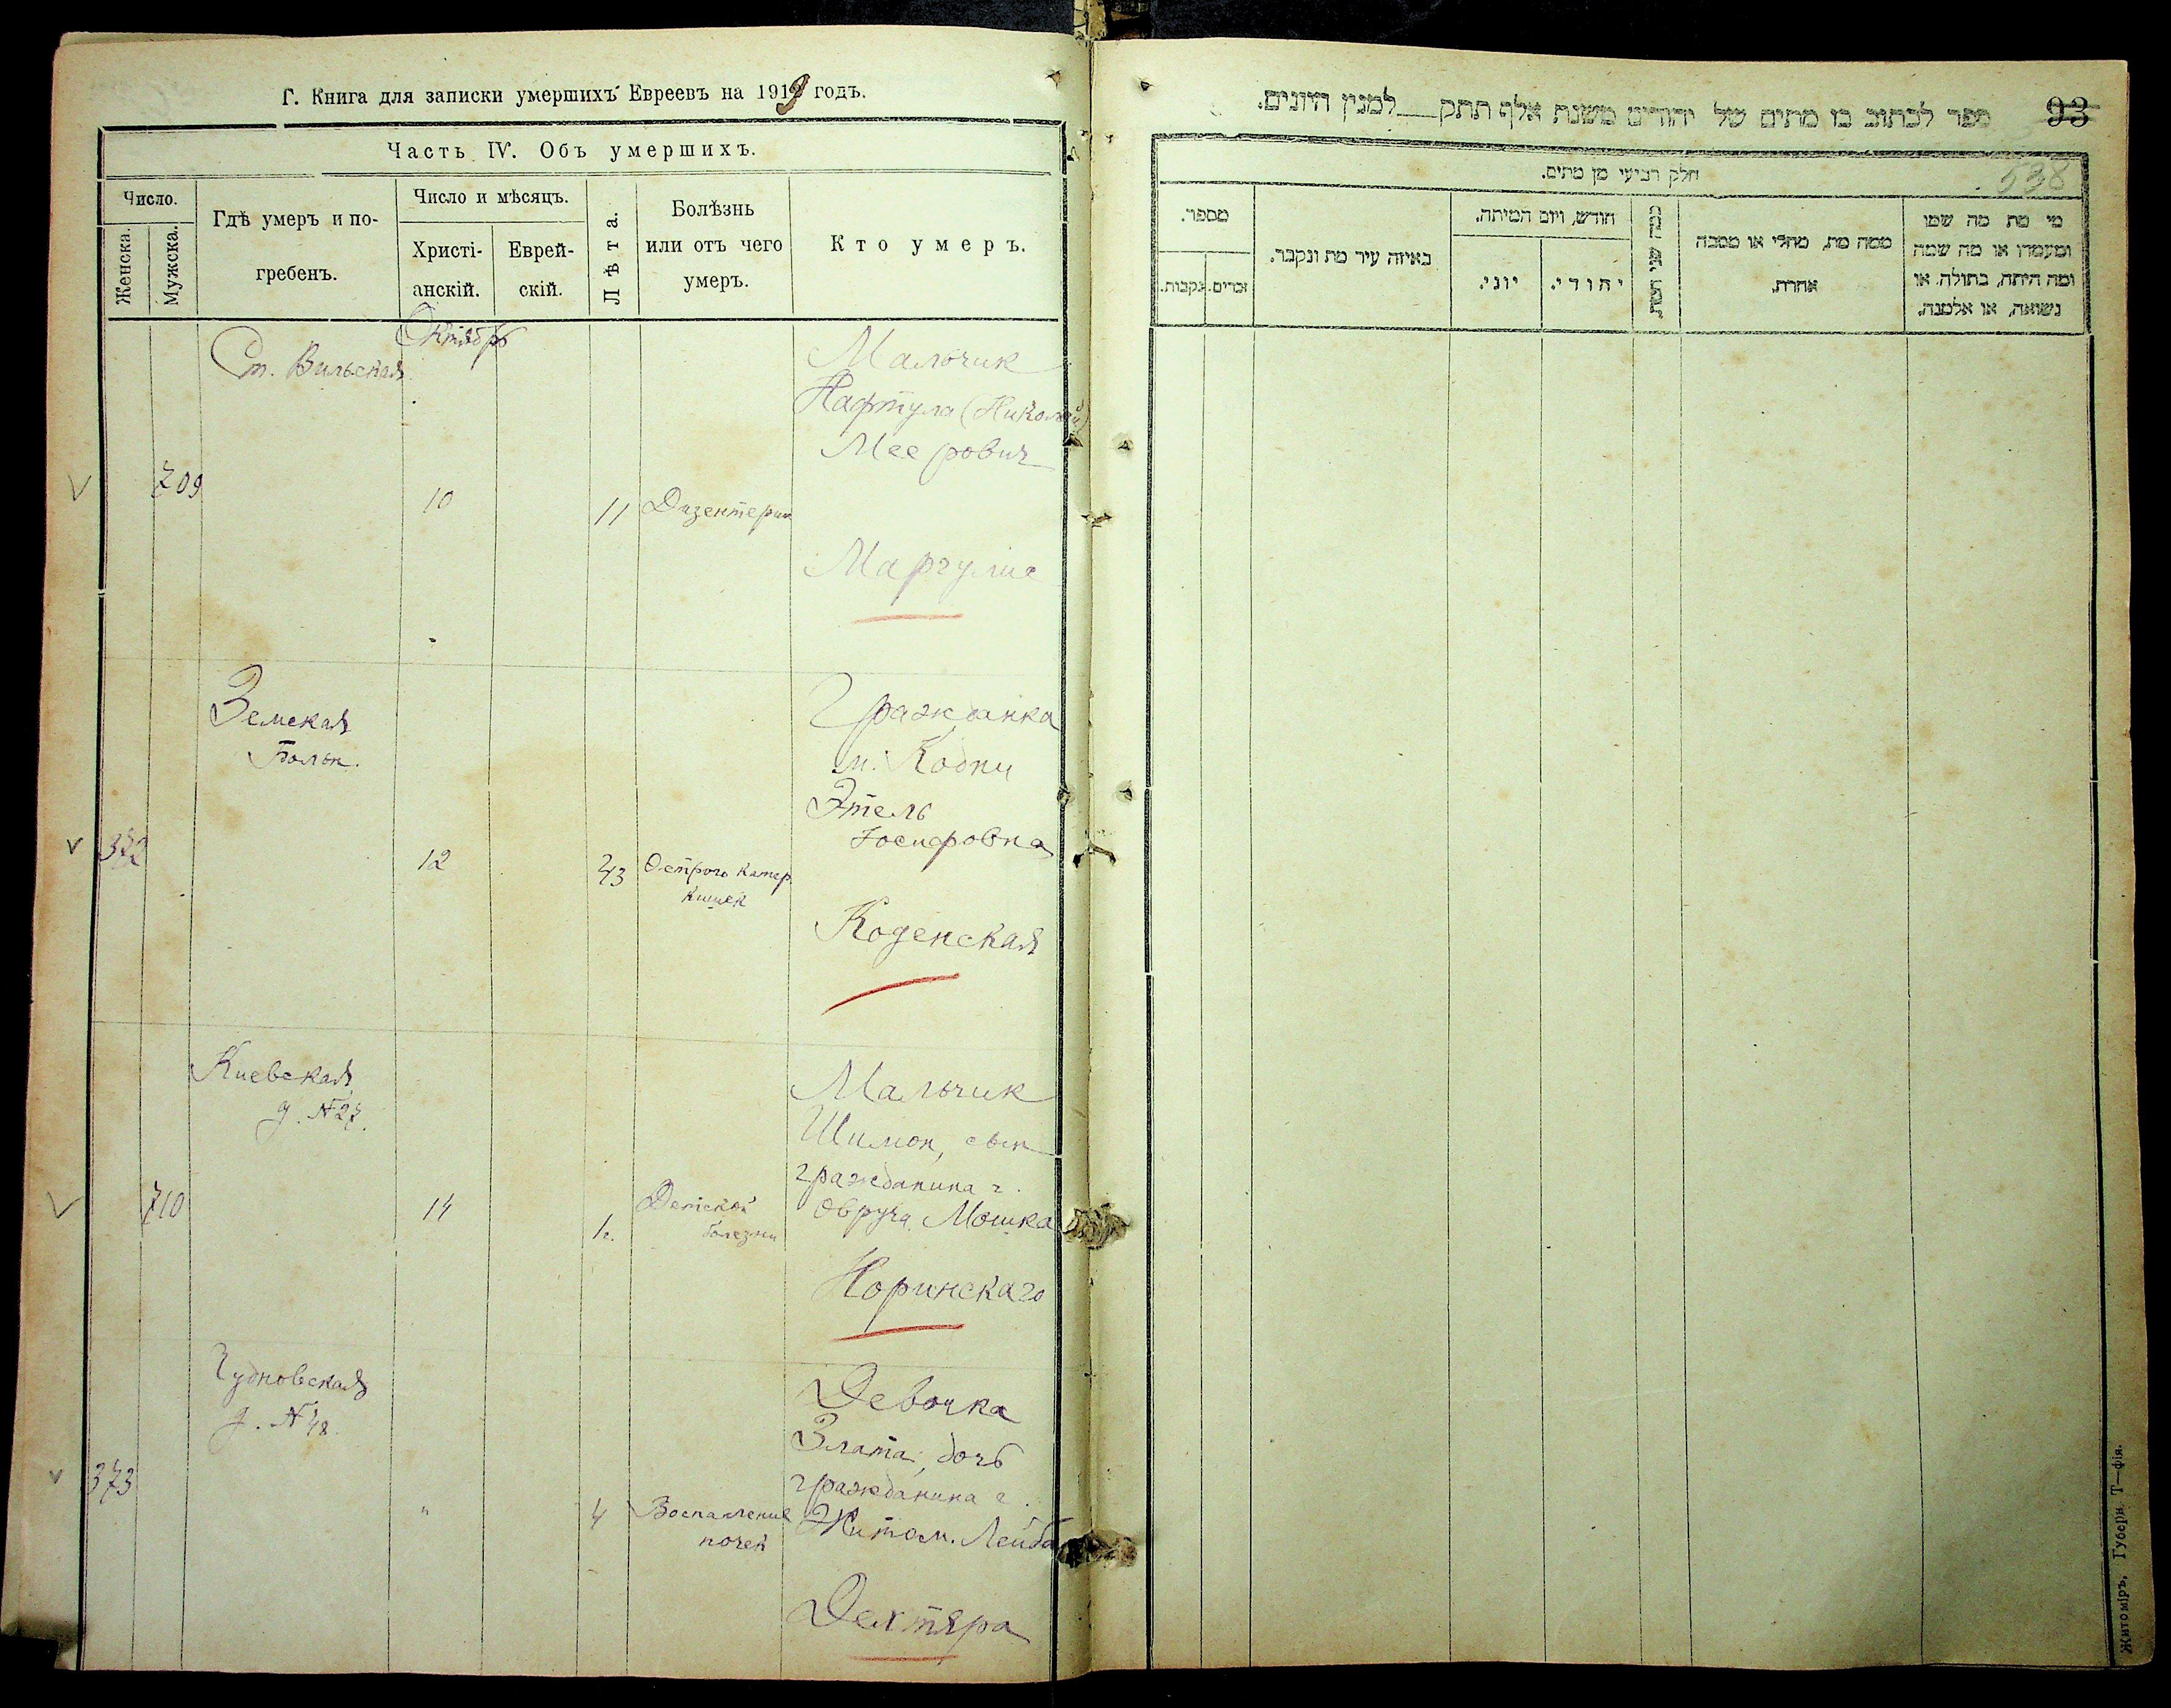 Г. Книга для записки умершихъ Евреевъ на 1919 годъ.
Часть IV. Объ умершихъ.
Число.
Женска.
Мужска.
Гдѣ умеръ и по-
гребенъ.
Число и мѣсяцъ.
Христі-
анскій.
Еврей-
скій.
Лѣта.
Болѣзнь
или отъ чего
умеръ.
Кто умеръ.
Октябрь
Ст. Вильская
709
10
11
Дизентерия
Мальчик
Нафтула (Николай)
Меерович
Маргулис
Земская
Больн.
372
12
43
Острого катар.
кишек
Гражданка
м. Кодни
Этель
Іосифовна
Коденская
Киевская
д. № 27.
710
14
1 г.
Детской
болезни
Мальчик
Шимон, сын
гражданина г.
Овруча Мошка
Норинскаго
Чудновская
д. № 48.
373
"
4
Воспаление
почек
Девочка
Злата, дочь
гражданина г.
Житом. Лейба
Дехтяра
ספר לכתוב בו מתים של יהודים משנת אלף תתק___למנין היונים.
93
538
חלק רביעי מן מתים.
מספר.
זכרים.
נקבות.
באיזה עיר מת ונקבר.
חודש, ויום המיתה.
יוני.
יהודי.
כמה שני המת.
ממה מת, מחלי או מסבה
אחרת.
מי מת מה שמו
ומעמדו או מה שמה
ומה היתה, בתולה או
נשואה, או אלמנה.
Житоміръ, Губерн. Т—фія.